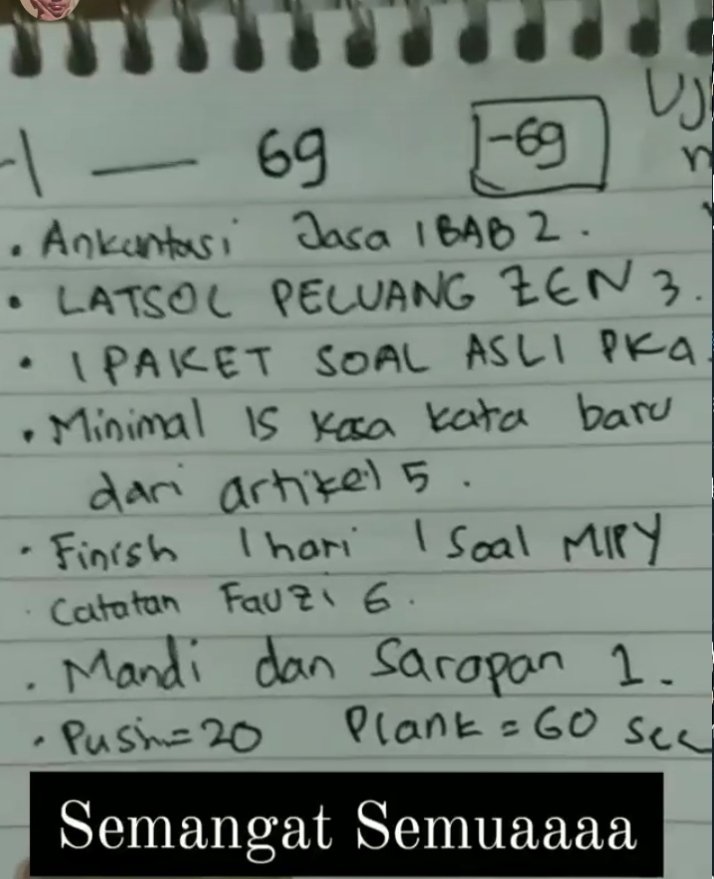 -1 — 69
-69
UJ
n
. Ankuntasi Jasa 1 BAB 2.
• LATSOL PELUANG ZEN 3.
• 1 PAKET SOAL ASLI PKA
. Minimal 15 Kosa kata baru
dari artikel 5.
· Finish 1 hari 1 Soal MIPY
. Catatan Fauzi 6.
. Mandi dan Saropan 1.
. Push=20 Plank = 60 sec
Semangat Semuaaaa